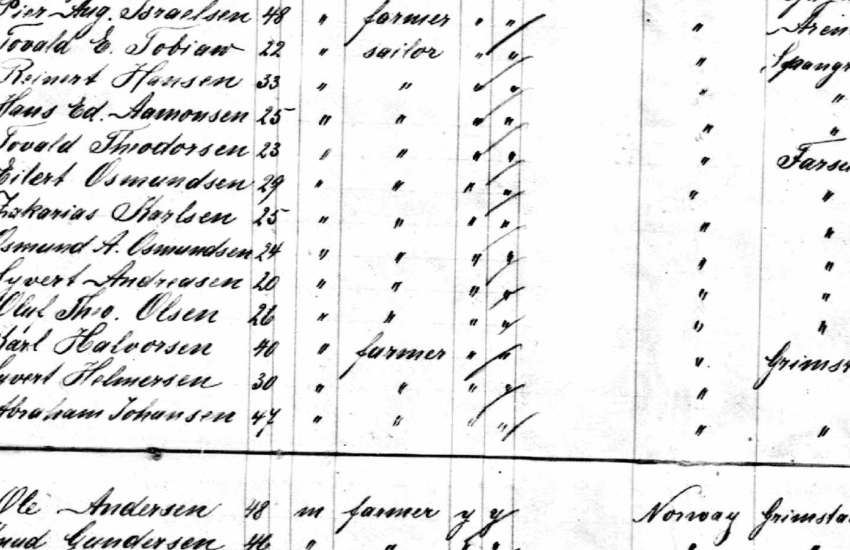 Pier Aug. Israelsen 48 " farmer " " " Aren
Tovald E. Tobiaw 22 " sailor " " " Spangr
Reinert Hansen 33 " " " " " "
Hans Ed. Aamonsen 25 " " " " " "
Tovald Theodorsen 23 " " " " " Farsu
Eilert Osmundsen 29 " " " " " "
Zakarias Karlsen 25 " " " " " "
Osmund A. Osmundsen 24 " " " " " "
Syvert Andreasen 20 " " " " " "
Oluf Theo. Olsen 26 " " " " " "
Karl Halvorsen 40 " farmer " " " Grimst
yvert Helmersen 30 " " " " "
Abraham Johansen 47 " " " " " "
Ole Andersen 48 m farmer y y Norway Grimsta
nud Gundersen 46 " " " " " "